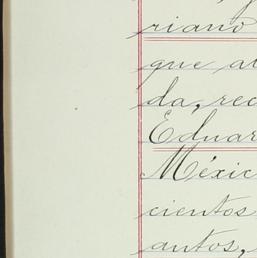 riano
que a
da, rec
Eduar
Méxic
cientos
antos,